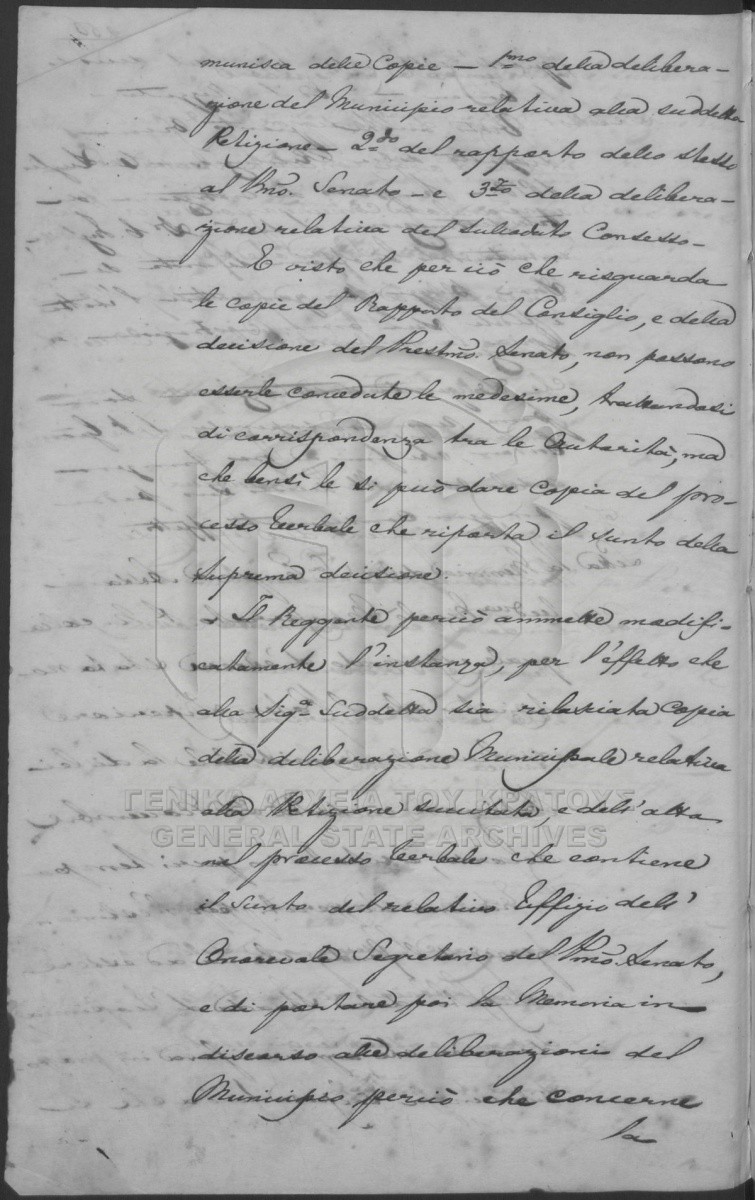 munisca delle Copie — 1.mo della delibera-
zione del Municipio relativa alla suddetta
Petizione — 2.do del rapporto dello stesso
al Pmo. Senato — e 3.zo della delibera-
zione relativa del sulodato Consesso —
E visto che per ciò che risguarda
le copie del Rapporto del Consiglio, e della
decisione del Prestmo. Senato, non possono
esserle concedute le medesime, trattandosi
di corrispondenza tra le Autorità, ma
che bensì le si può dare Copia del pro-
cesso Verbale che riporta il sunto della
Suprema decisione.
Il Reggente perciò ammette modifi-
catamente l'instanza, per l'effetto che
alla Siga. Suddetta sia rilasciata Copia
della deliberazione Municipale relativa
alla Petizione succitata, e dell'atto
nel processo Verbale che contiene
il sunto del relativo Uffizio dell'
Onorevole Segretario del Pmo. Senato,
e di portare poi la Memoria in
discorso alle deliberazioni del
Municipio perciò che concerne
la
ΓΕΝΙΚΑ ΑΡΧΕΙΑ ΤΟΥ ΚΡΑΤΟΥΣ
GENERAL STATE ARCHIVES